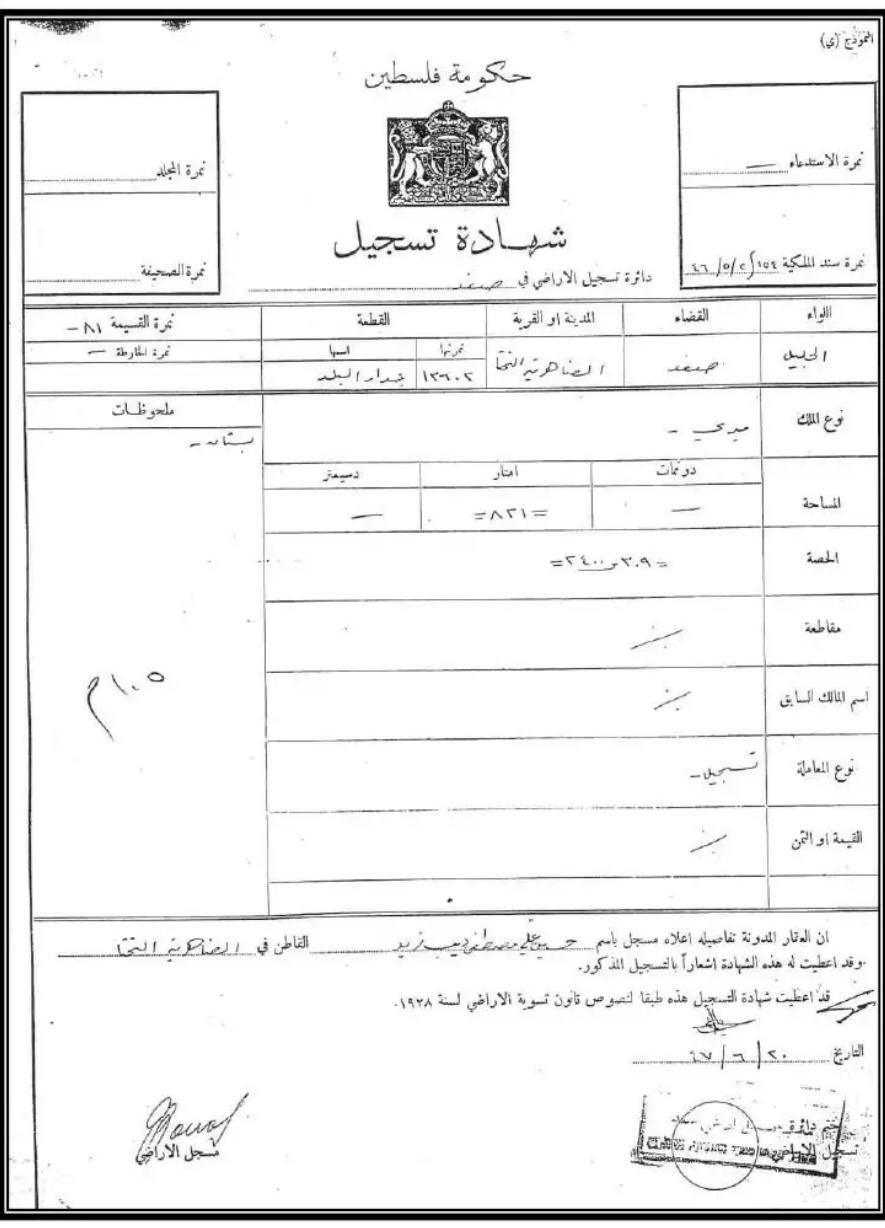 النموذج (ي)
حكومة فلسطين
نمرة الاستدعاء —
نمرة المجلد
شهادة تسجيل
نمرة سند الملكية ١٥٤/٥/٢/٤٦
دائرة تسجيل الاراضي في صفد
نمرة الصحيفة
اللواء
القضاء
المدينة او القرية
القطعة
نمرة القسيمة ٨١ -
الجليل
صفد
الضاهرية التحتا
نمرتها
١٣٦٠٢
اسمها
جدار البلد
نمرة الخارطة —
نوع الملك
ميري -
ملحوظات
بستان -
المساحة
دونمات
امتار
دسيمتر
—
=٨٢١=
—
الحصة
=٣٠٩ من ٢٤٠٠=
مقاطعة
اسم المالك السابق
١٠٥ م
نوع المعاملة
تسجيل -
القيمة او الثمن
ان العقار المدونة تفاصيله اعلاه مسجل باسم حسين علي مصطفى ديب زيد القاطن في الضاهرية التحتا
وقد اعطيت له هذه الشهادة اشعاراً بالتسجيل المذكور.
قد اعطيت شهادة التسجيل هذه طبقا لنصوص قانون تسوية الاراضي لسنة ١٩٢٨.
التاريخ ٢٠/٦/٤٧
ختم دائرة
تسجيل الاراضي
مسجل الاراضي